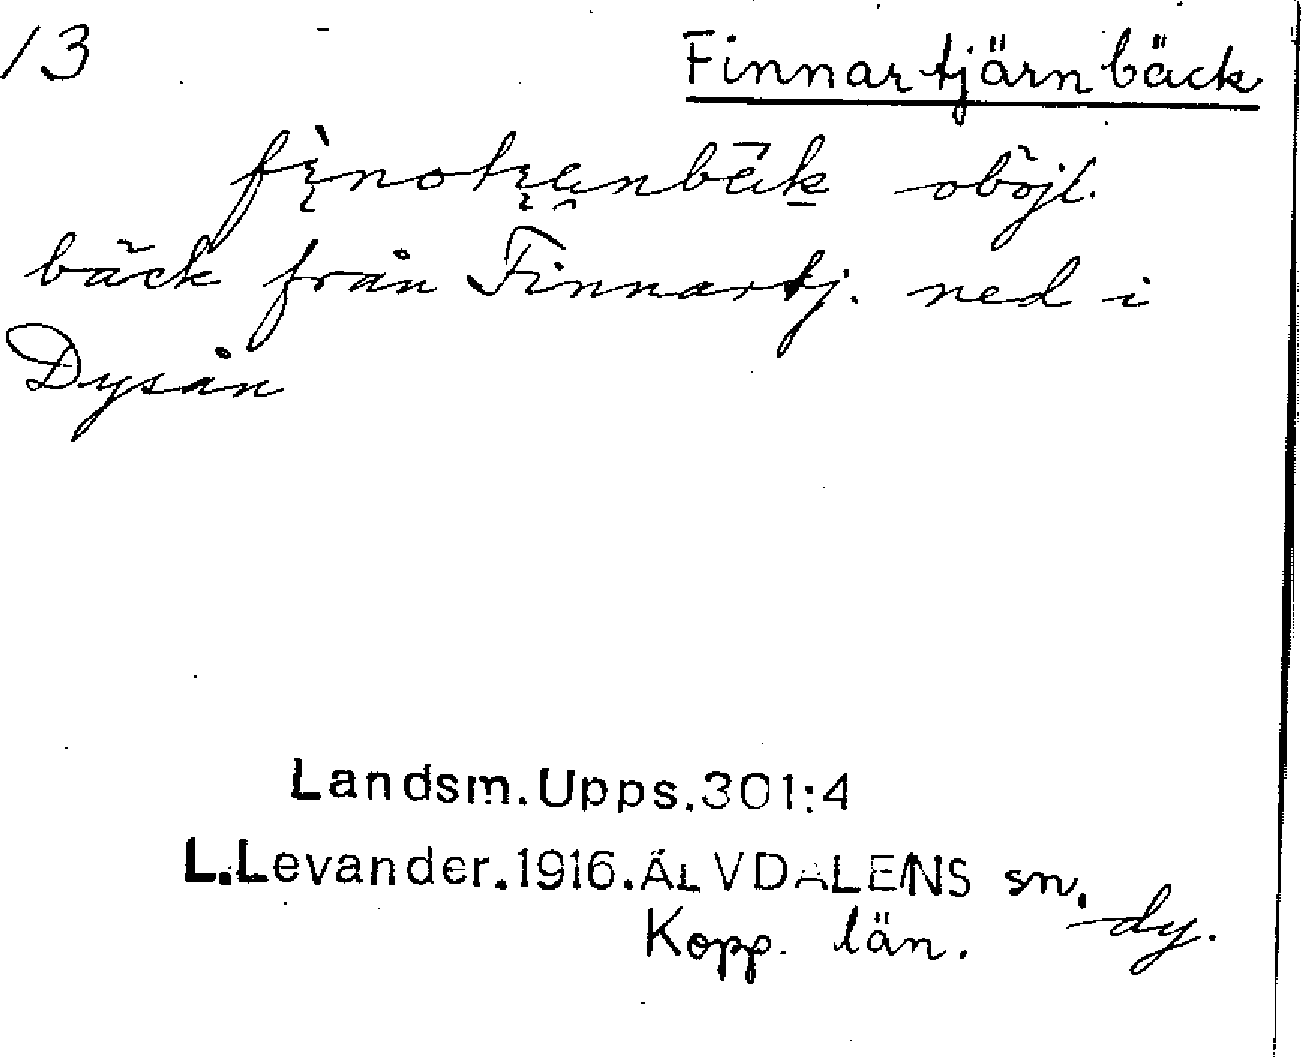 13
Finnartjärnbäck
oböjl.
bäck från Finnartj. ned i
Dysån
Landsm.Upps.301:4
L.Levander.1916.ÄLVDALENS sn.
Kopp. län. dy.